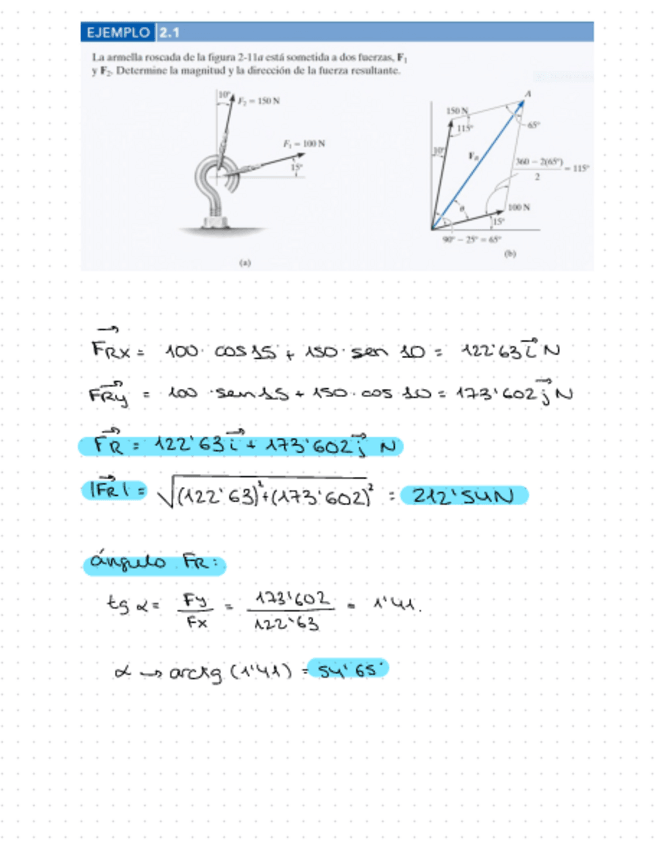 EJEMPLO 2.1
La armella roscada de la figura 2-11a está sometida a dos fuerzas, F₁
y F₂. Determine la magnitud y la dirección de la fuerza resultante.
10°
F₂ = 150 N
F₁ = 100 N
15°
(a)
A
150 N
115°
65°
10°
F_R
360 - 2(65°) / 2 = 115°
θ
100 N
15°
90° - 25° = 65°
(b)
F_RX = 100 · cos 15 + 150 · sen 10 = 122'63 i N
F_Ry = 100 · sen 15 + 150 · cos 10 = 173'602 j N
F_R = 122'63 i + 173'602 j N
|F_R| = √(122'63)² + (173'602)² = 212'54 N
ángulo F_R:
tg α = Fy / Fx = 173'602 / 122'63 = 1'41.
α → arctg (1'41) = 54'65°